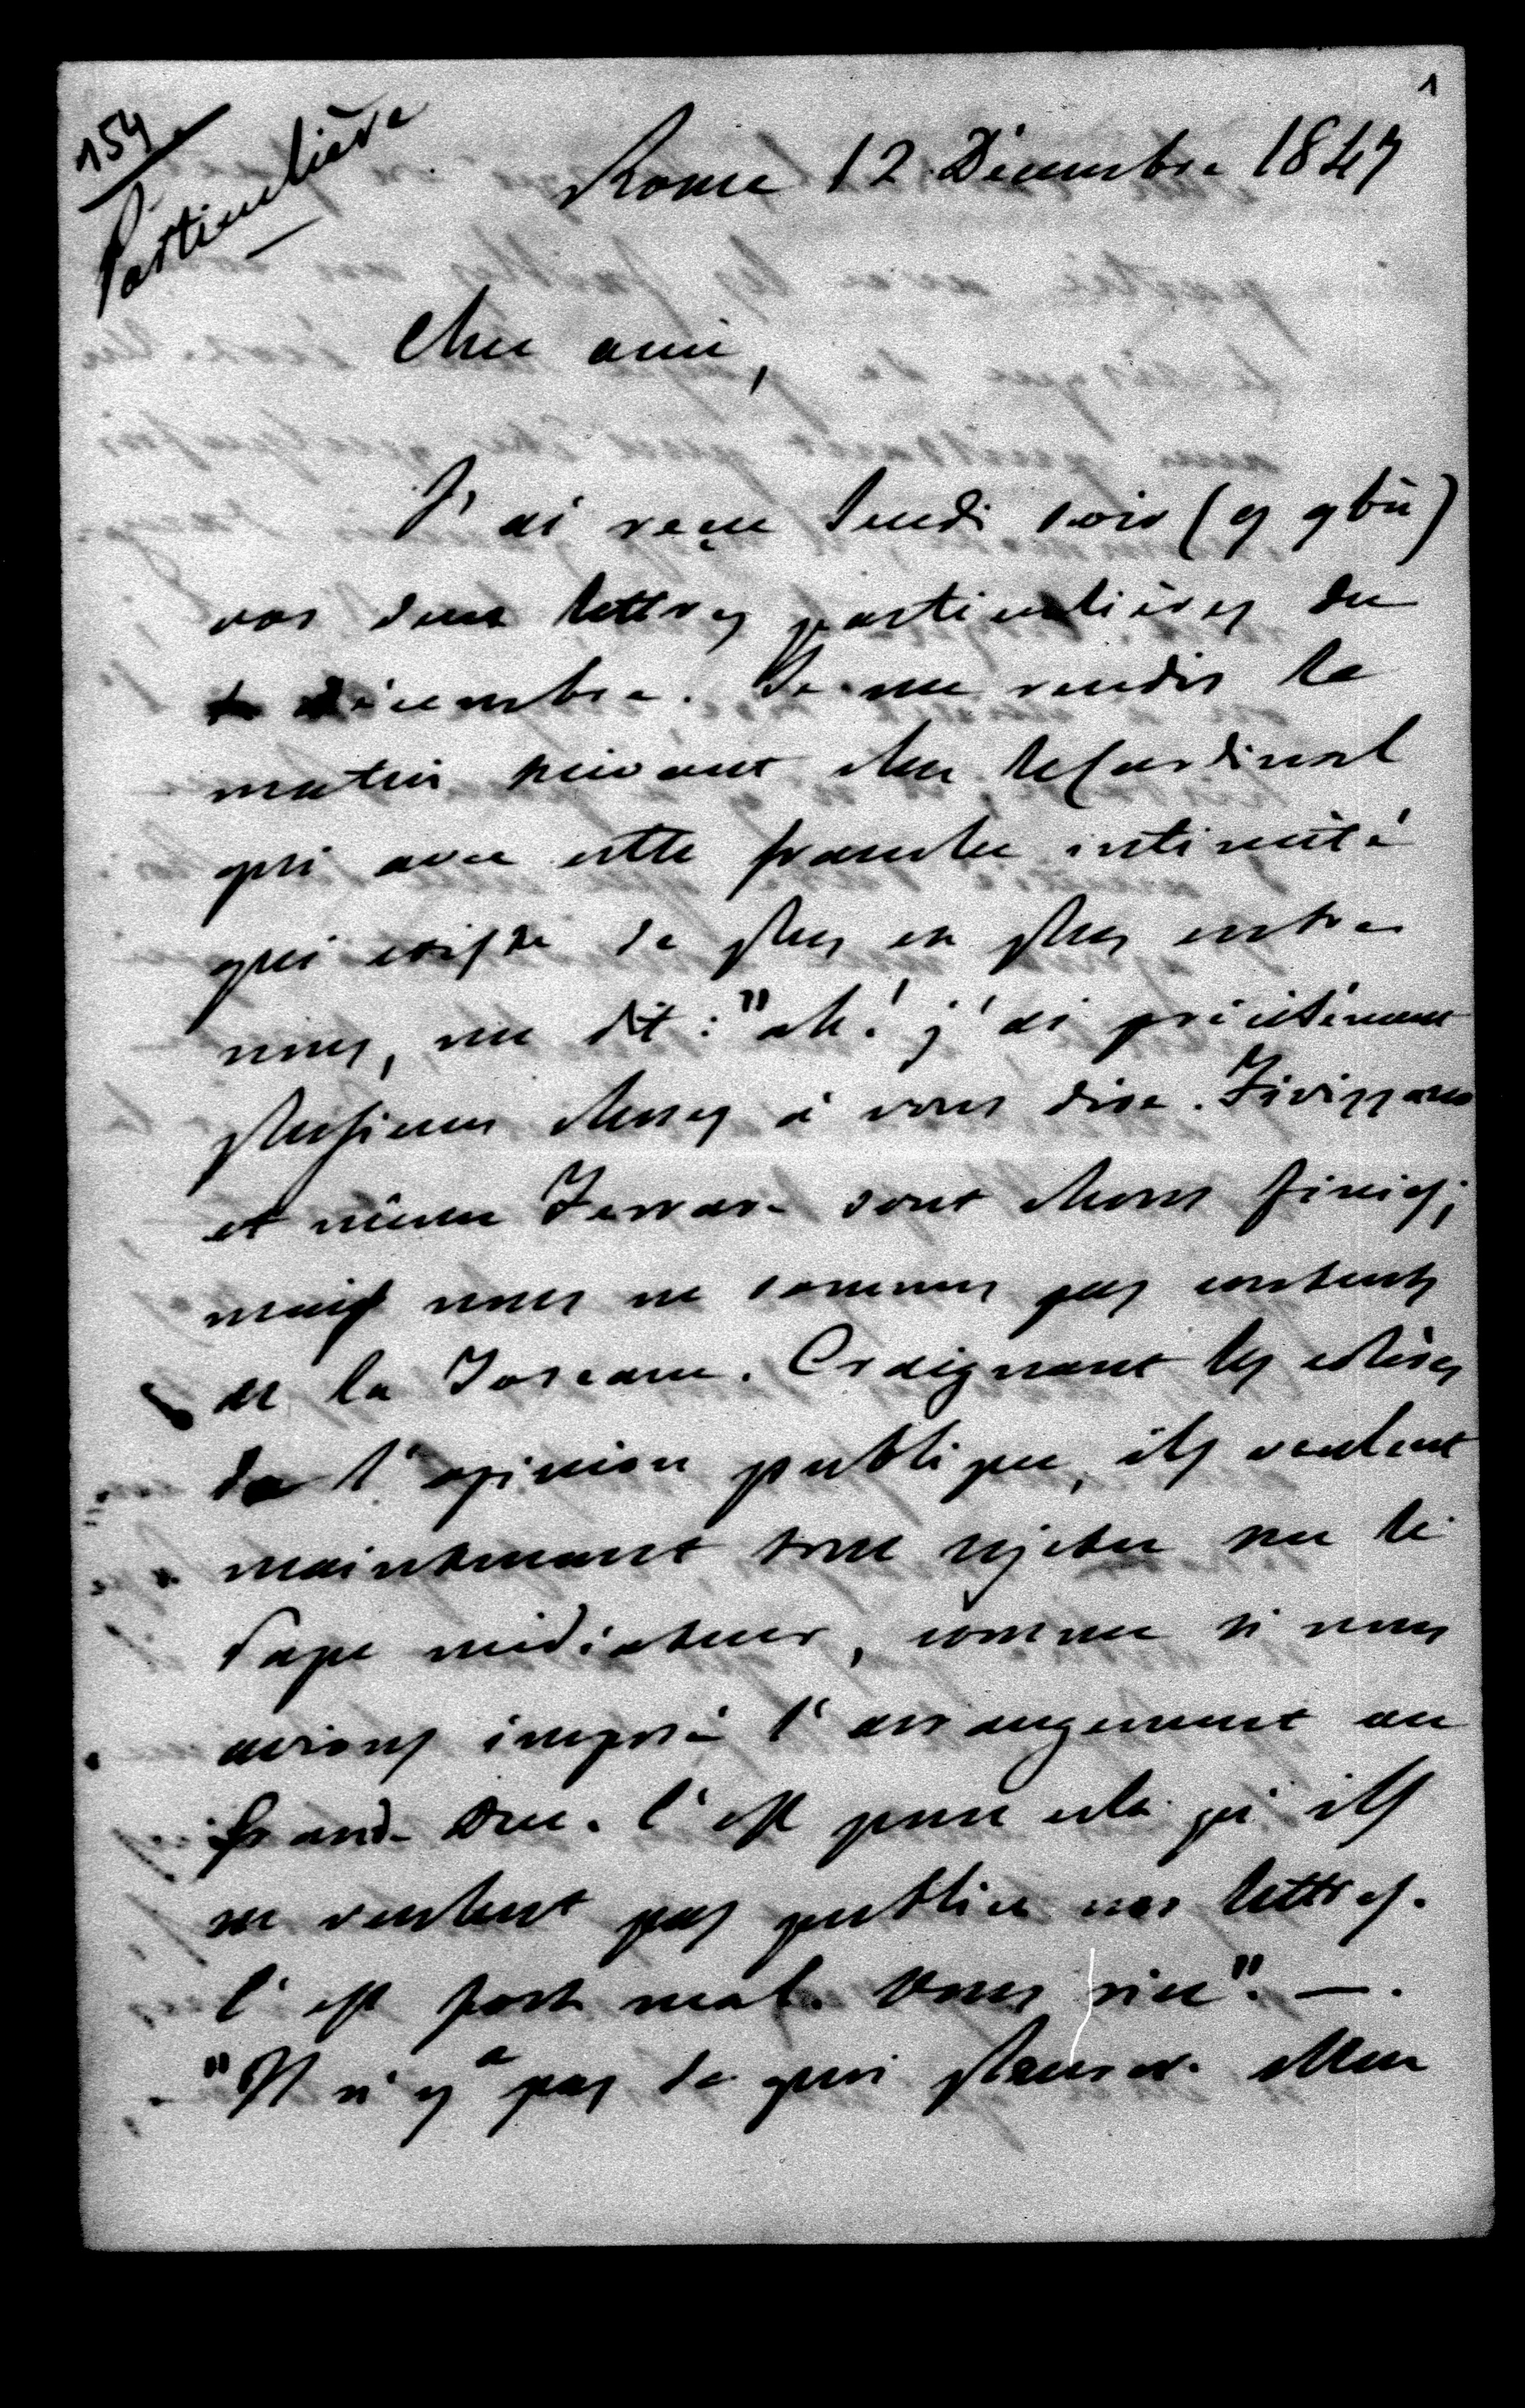 1
154
Particulière
Rome 12 Décembre 1847
Cher ami,
J'ai reçu Jeudi soir (9 9bre)
vos deux lettres particulières du
décembre. Je me rendis le
matin suivant chez le Cardinal
qui avec cette franche intimité
qui existe de plus en plus entre
nous, me dit : "ah! j'ai précisément
plusieurs choses à vous dire. Fivizzano
et même Ferrare sont choses finies;
mais nous ne sommes pas contents
de la Toscane. Craignant les colères
de l'opinion publique, ils veulent
maintenant tout rejeter sur le
Pape médiateur, comme si nous
avions imposé l'arrangement au
Grand-Duc. C'est pour cela qu'ils
ne veulent pas publier nos lettres.
C'est fort mal. Vous riez". —.
"Il n'y a pas de quoi pleurer. Mon